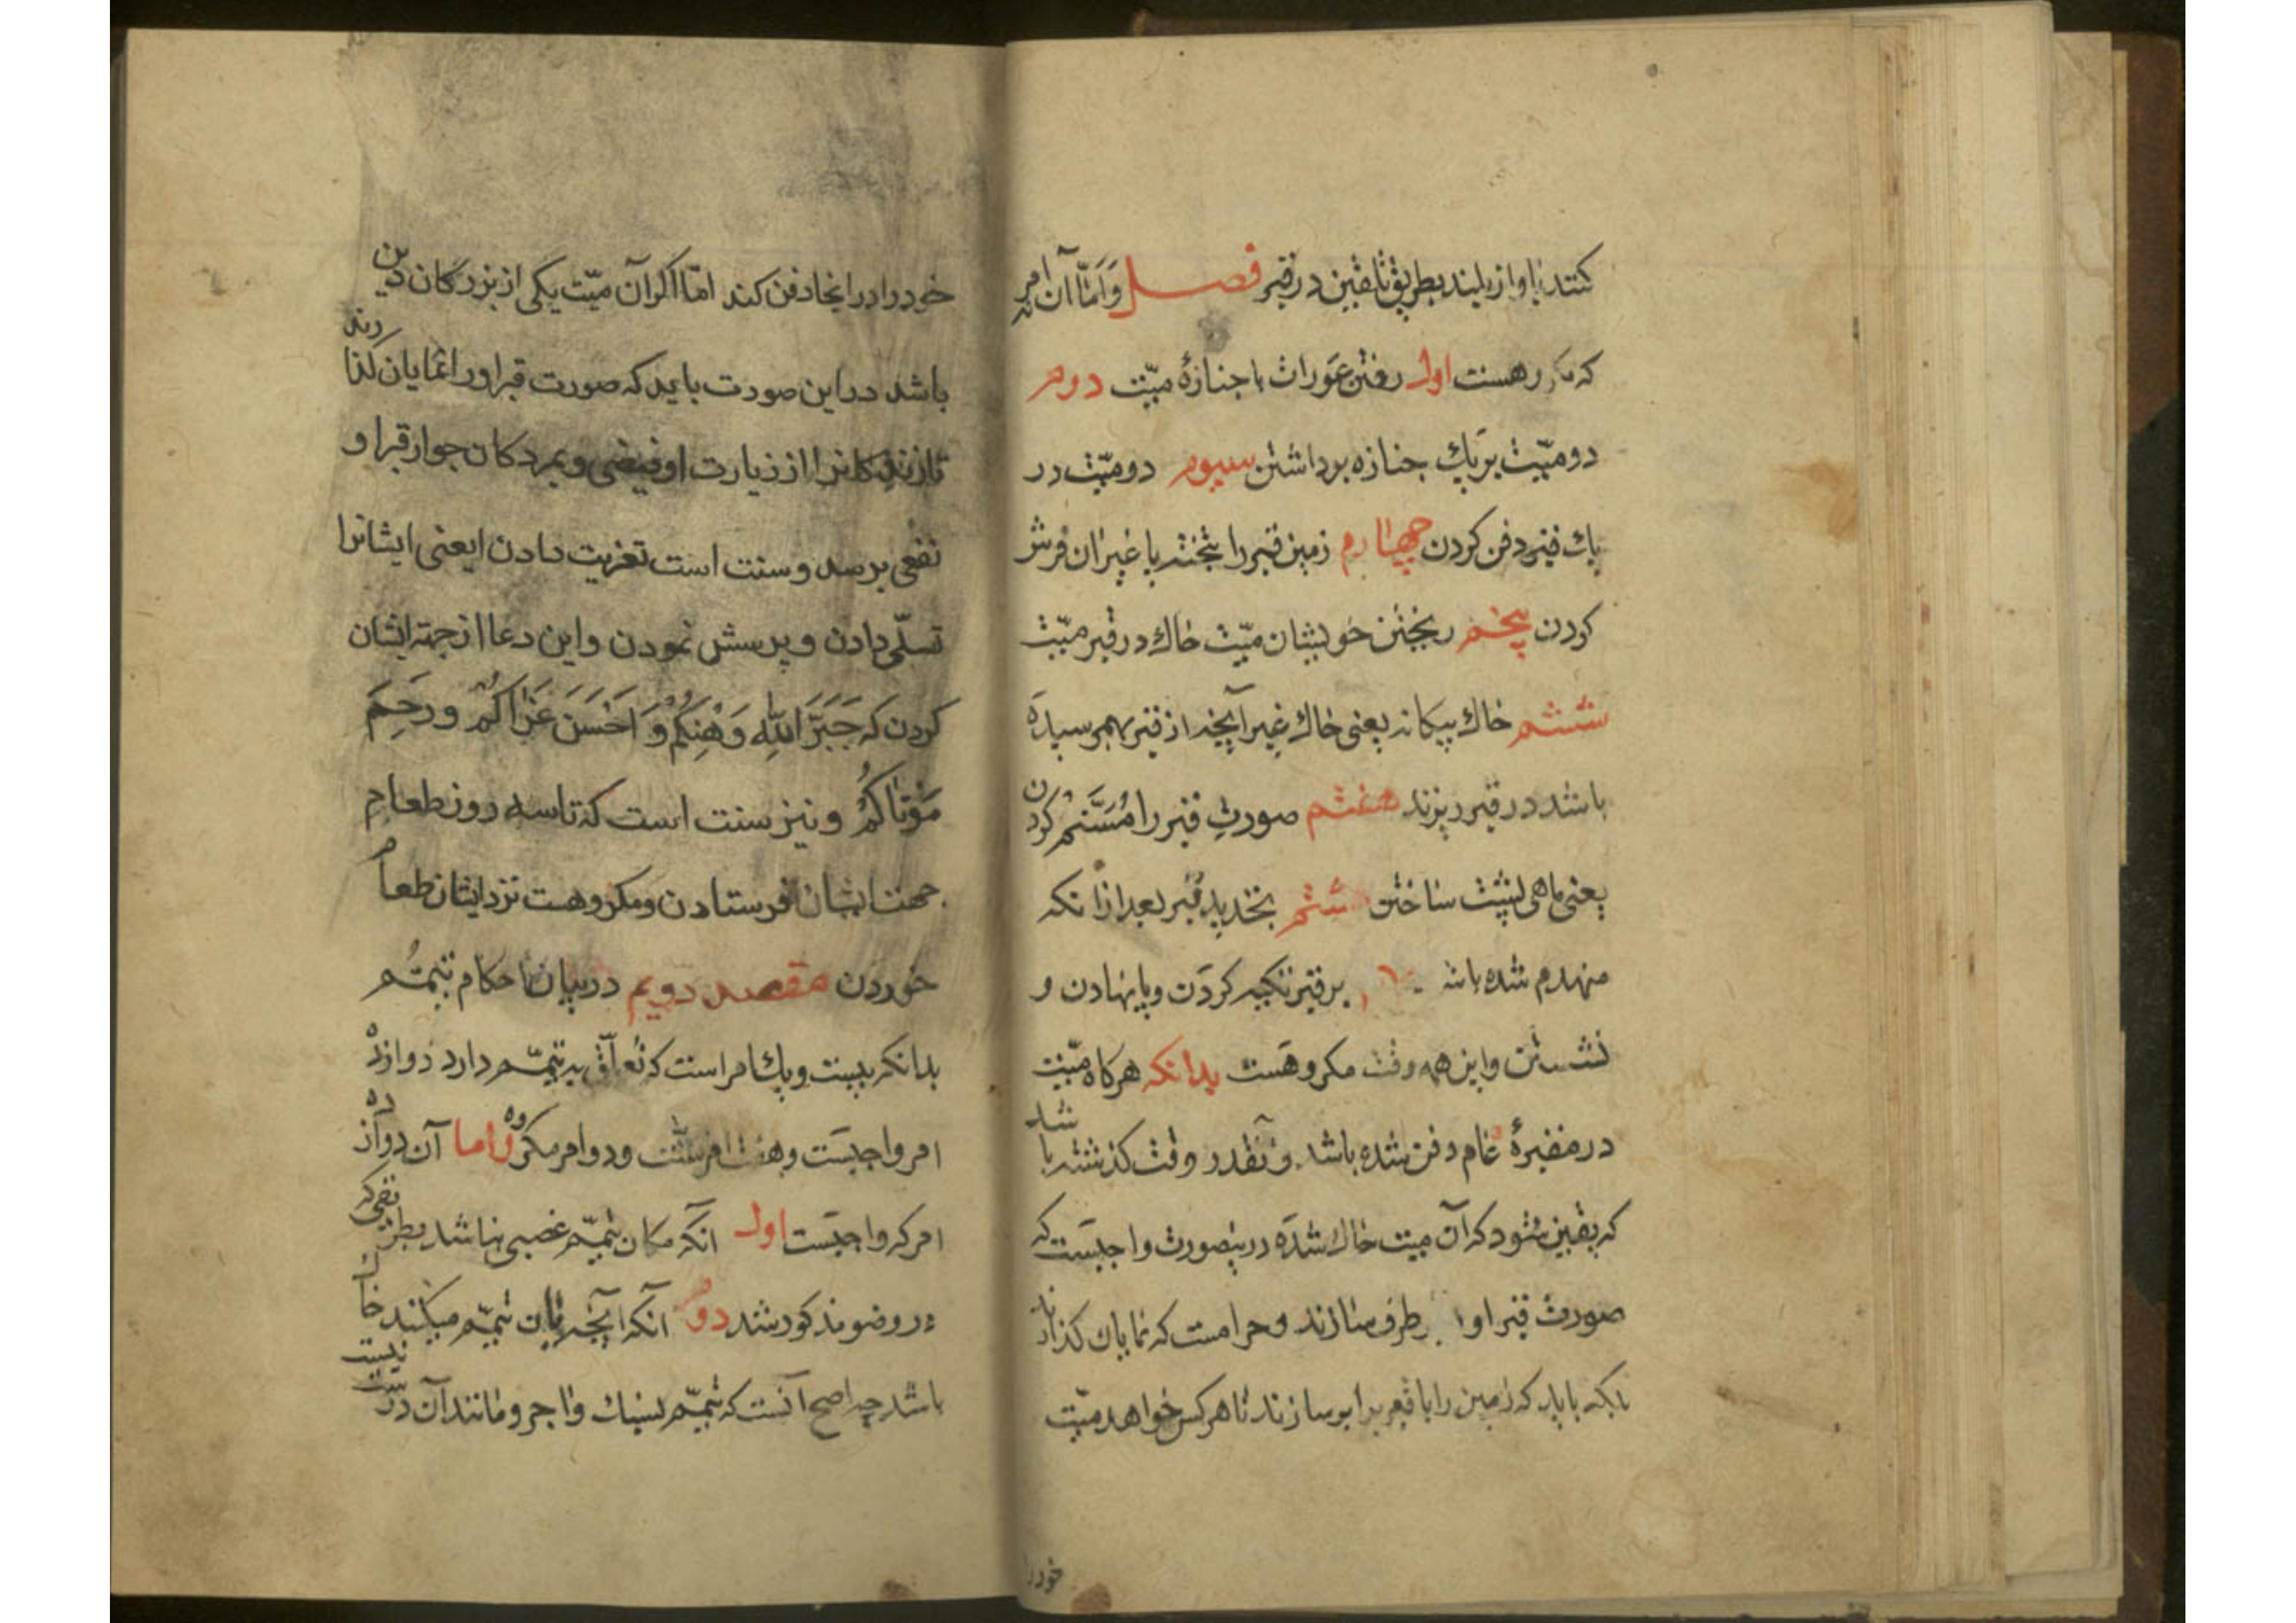 کنند باواز بلند بطریق تلقین در قبر فصل وَاَمّا آن امر نه
که مکروهست اول رفتن عَورات با جنازهٔ میّت دوم
دو میّت بر یك جنازه برداشتن سیوم دو میّت در
یك قبر دفن کردن چهارم زمین قبر را بتخته یا غیر ان فرش
کردن پنجم ریختن خویشان میّت خاك در قبر میّت
ششم خاك بیکانه یعنی خاك غیر آنچه از قبر بهم رسیده
باشد در قبر ریزند هفتم صورتِ قبر را مُسَنَّم کردن
یعنی ماهی پشت ساختن هشتم تجدید قبر بعد از انکه
منهدم شده باشد بر قبر تکیه کردن و پا نهادن و
نشستن و این همه وقت مکروهست بدانکه هرکاه میّت
در مقبرهٔ عام دفن شده باشد و آنقدر وقت کذشته باشد
که یقین شود که آن میت خاك شده درینصورت واجبست که
صورت قبر او بر طرف سازند و حرامست که نمایان کذارند
بلکه باید که زمین را با قبر برابر سازند تا هرکس خواهد میّت
خود را
خود را در انجا دفن کند امّا اکر آن میّت یکی از بزرکان دین
باشد در این صورت باید که صورت قبر او را نمایان کذارند
تا زندکانرا از زیارت او فیضی و بمردکان جوار قبر او
نفعی برسد و سنت است تعزیت دادن یعنی ایشانرا
تسلّی دادن و پرسش نمودن و این دعا از جهته ایشان
کردن که جَبَرَ اللّه وَهْنِکُمْ وَ اَحْسَنَ عَزٰاکُمْ وَ رَحِمَ
مَوْتاکُمْ و نیز سنت است که تا سه روز طعام
جهت ایشان فرستادن و مکروهست نزد ایشان طعام
خوردن مقصد دویم در بیان احکام تیمّم
بدانکه بیست و یك امر است که تعلّق به تیمّم دارد دوازده
امر واجبست و هفت امر سنّت و دو امر مکروه و اما آن دوازده
امر که واجبست اول آنکه مکان تیمّم غصبی نباشد بطریقی که
در وضو مذکور شد دوم آنکه آنچه بان تیمّم میکنند خاك
باشد چه اصح آنست که تیمّم بسنك و اجر و مانند آن درست نیست